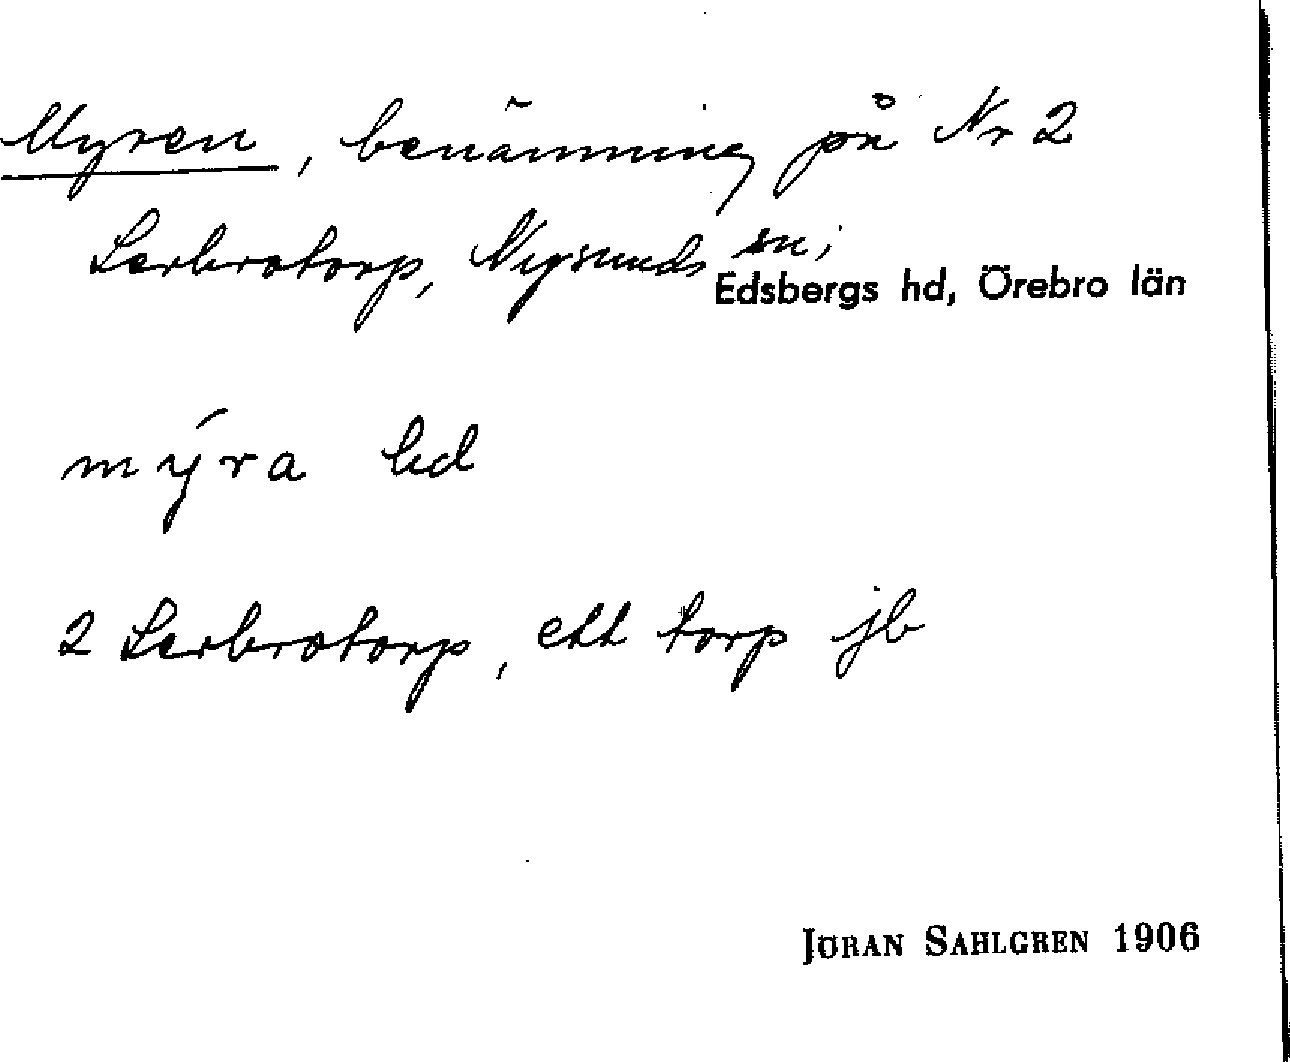 Myren, benämning på Nr 2
Lerbrotorp, Nysunds sn;
Edsbergs hd, Örebro län
mýra bd
2 Lerbrotorp, ett torp jb
JÖRAN SAHLGREN 1906